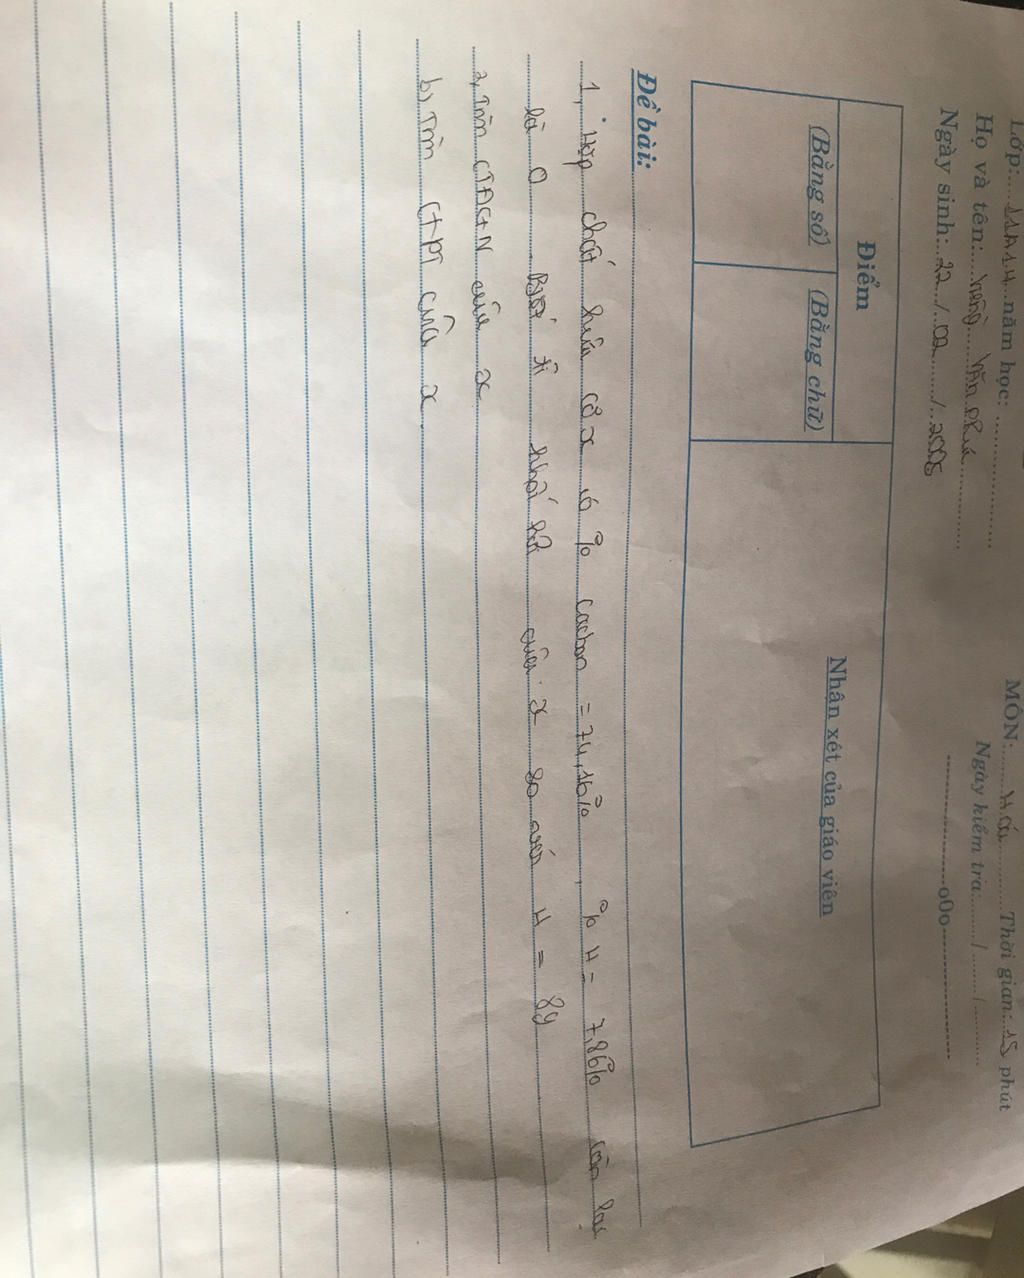 Lớp:.....11A14..năm học:....................
Họ và tên:.............Văn Phú...............
Ngày sinh:..22../..02......../..2008
MÔN:......Hóa...........Thời gian:..15 phút
Ngày kiểm tra......../........./...........
--------------------oOo--------------------
Điểm
Nhận xét của giáo viên
(Bằng số)
(Bằng chữ)
Đề bài:
1, Hợp chất hữu cơ x có % cacbon = 74,16% , % H = 7,86% còn lại
là O Biết tỉ khối hơi của x so với H = 89
a, Tìm CTĐGN của x
b, Tìm CTPT của x